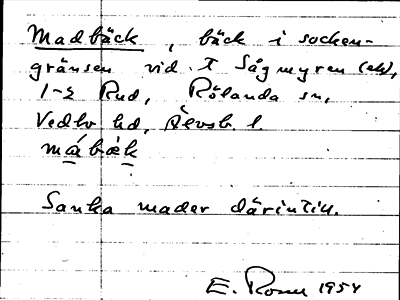 Madbäck, bäck i socken-
gränsen vid T Sågmyren (ek),
1-2 Rud, Rölanda sn,
Vedbo hd, Älvsb. l.
mábàk
Sanka mader därintill.
E. Rosm 1954